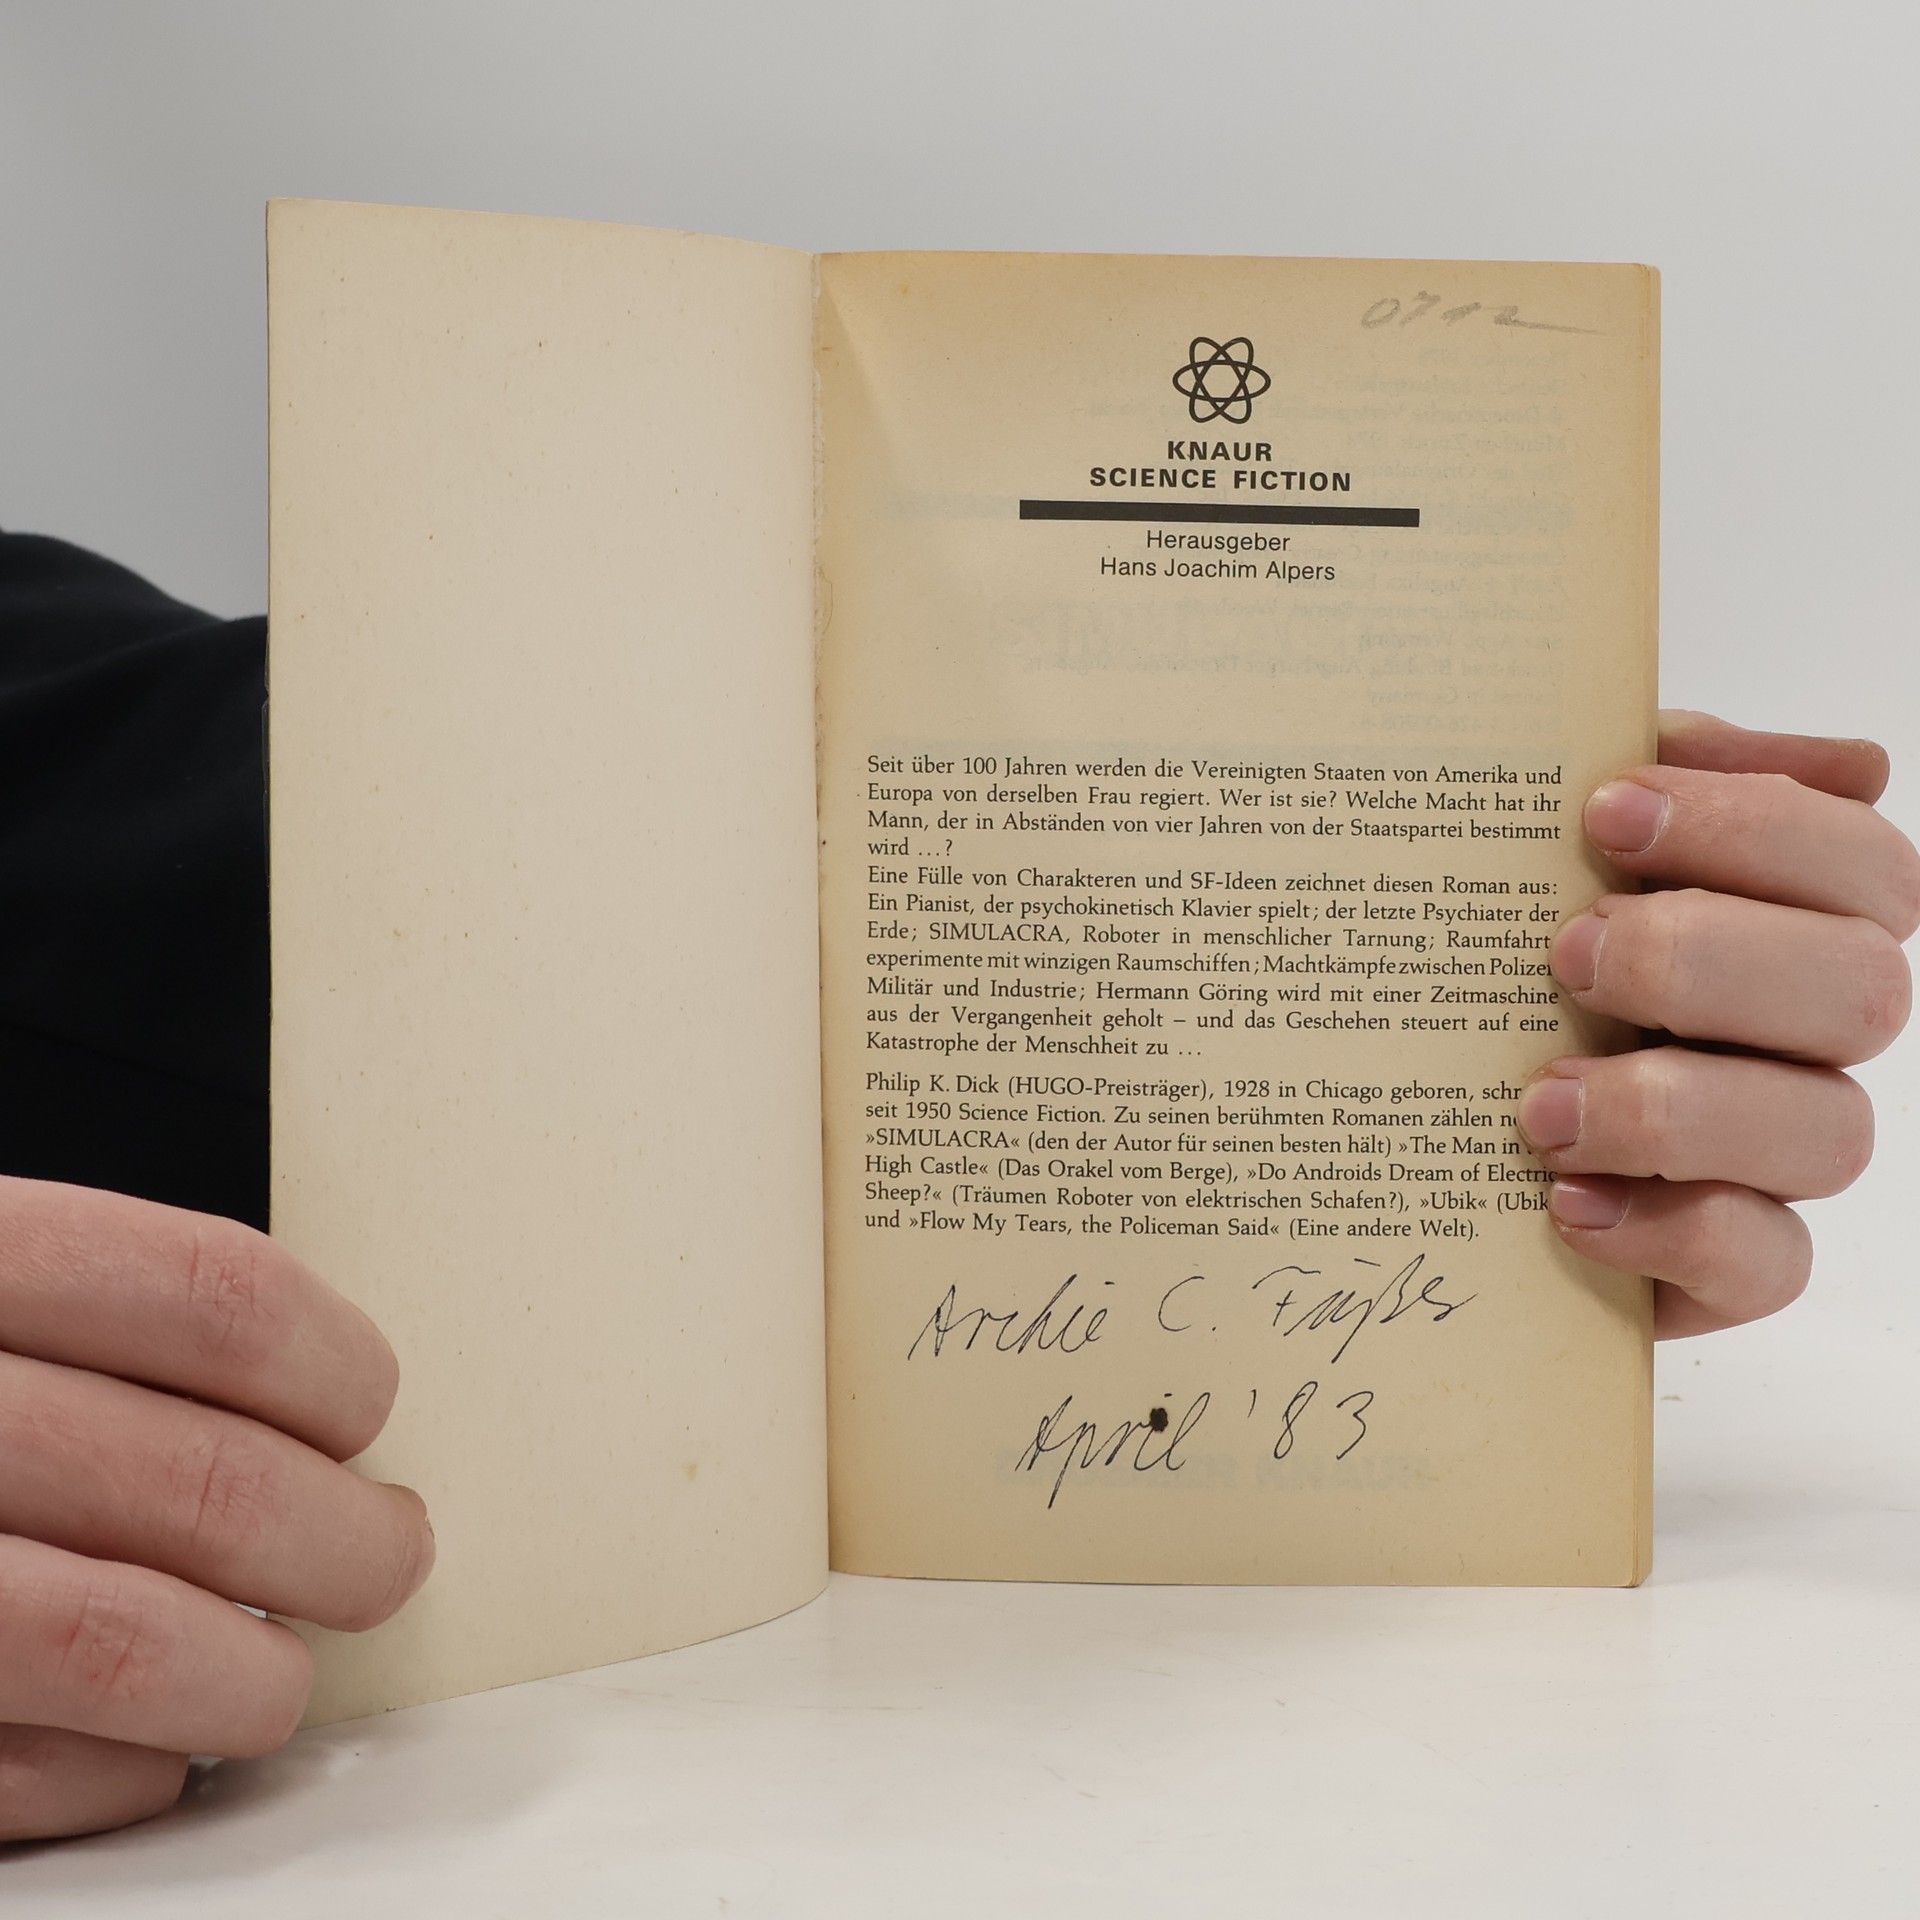 KNAUR
SCIENCE FICTION
Herausgeber
Hans Joachim Alpers
Seit über 100 Jahren werden die Vereinigten Staaten von Amerika und
Europa von derselben Frau regiert. Wer ist sie? Welche Macht hat ihr
Mann, der in Abständen von vier Jahren von der Staatspartei bestimmt
wird ...?
Eine Fülle von Charakteren und SF-Ideen zeichnet diesen Roman aus:
Ein Pianist, der psychokinetisch Klavier spielt; der letzte Psychiater der
Erde; SIMULACRA, Roboter in menschlicher Tarnung; Raumfahrt
experimente mit winzigen Raumschiffen; Machtkämpfe zwischen
Militär und Industrie; Hermann Göring wird mit einer Zeitmaschine
aus der Vergangenheit geholt – und das Geschehen steuert auf eine
Katastrophe der Menschheit zu ...
Philip K. Dick (HUGO-Preisträger), 1928 in Chicago geboren,
seit 1950 Science Fiction. Zu seinen berühmten Romanen zählen
»SIMULACRA« (den der Autor für seinen besten hält) »The Man in
High Castle« (Das Orakel vom Berge), »Do Androids Dream of Electric
Sheep?« (Träumen Roboter von elektrischen Schafen?), »Ubik« (Ubik
und »Flow My Tears, the Policeman Said« (Eine andere Welt).
Archie C. Füßer
April '83